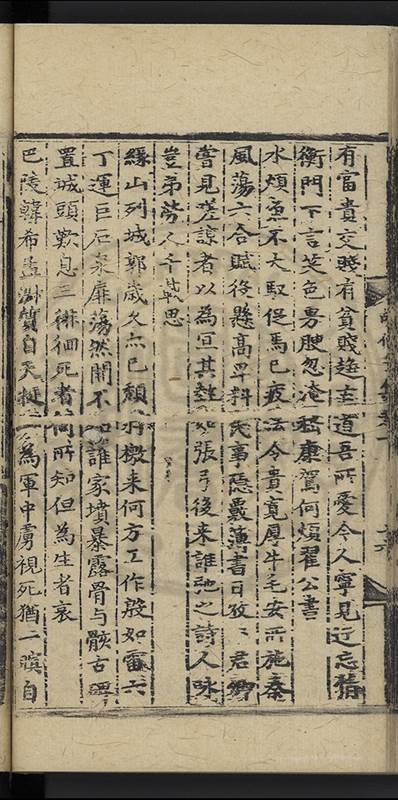 有富貴交賤有貧賤趍主道吾所愛今人寧見近忘猜
衡門下言笑色男腴忽淹嵇康駕何煩翟公書
水煩魚不大取促馬已疲法令貴寬厚牛毛安所施秦
風蕩六合賦役懸高卑料民事隱覈薄書日孜〻君卿
嘗見嗟諒者以為宜其難如張弓後来誰弛之詩人咏
豈弟勞人千載思
緣山列城郭歲久亦已頹府檄来何方工作殷如雷六
丁運巨石榛扉蕩然開不知誰家墳暴露骨与骸古
置城頭歎息三徘徊死者何所知但為生者哀
巴陵韓希孟淵質自天挺一為軍中虜視死猶一瞑自